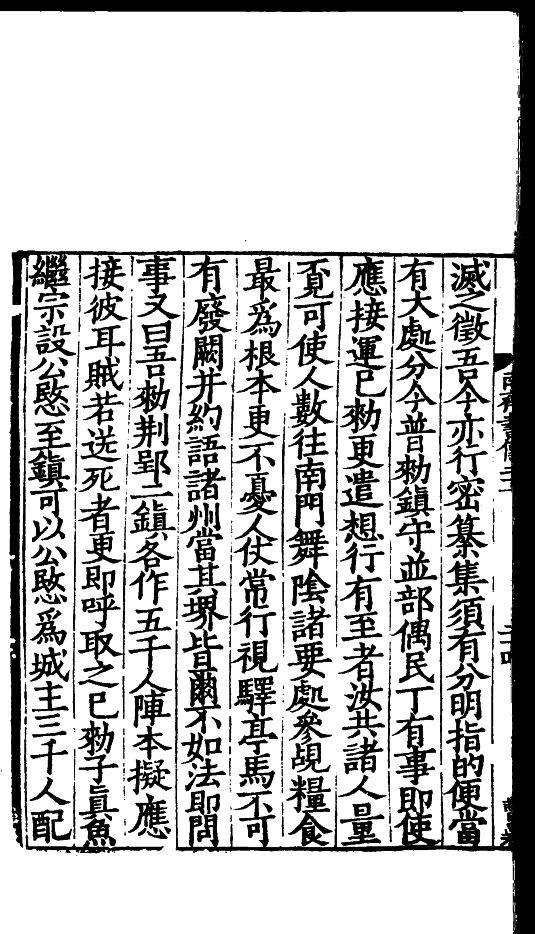 滅之徵吾今亦行密纂集須有分明指的便當
有大處分今普勑鎮守並部偶民丁有事即使
應接運已勑更遣想行有至者汝共諸人量
覔可使人數往南門舞陰諸要處參覘糧食
最爲根本更不憂人仗常行視驛亭馬不可
有廢闕并約語諸州當其堺皆爾不如法即問
事又曰吾勑荆郢二鎮各作五千人陣本擬應
接彼耳賊若送死者更即呼取之已勑子眞魚
繼宗設公愍至鎮可以公愍爲城主三千人配